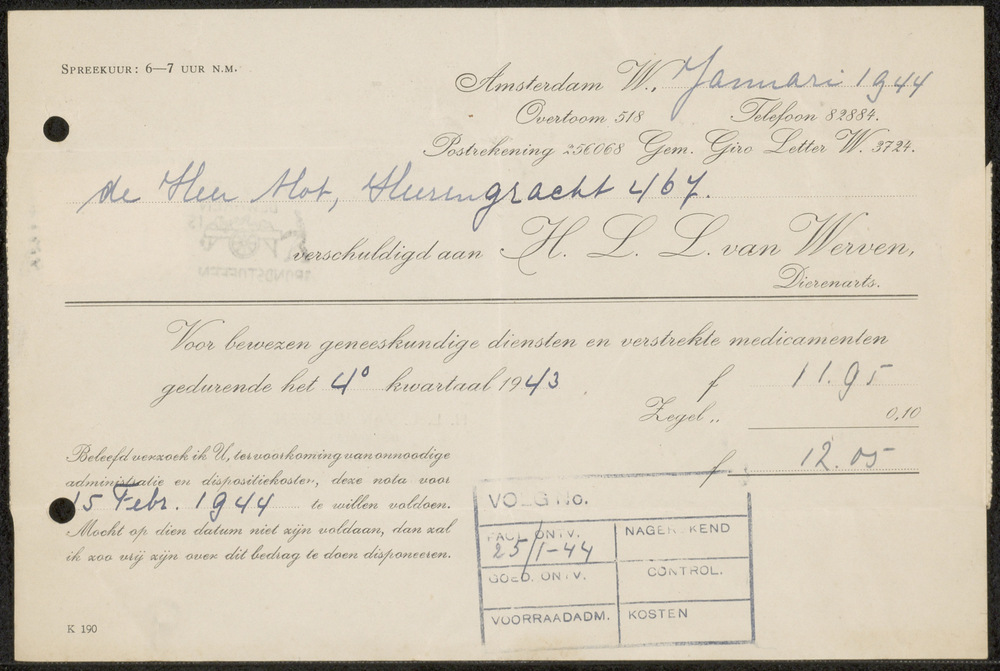 SPREEKUUR: 6—7 UUR N.M.
Amsterdam W., Januari 1944
Overtoom 518 Telefoon 82884.
Postrekening 256068 Gem. Giro Letter W. 3724.
de Heer Mot, Heerengracht 467.
verschuldigd aan H. L. L. van Werven,
Dierenarts.
Voor bewezen geneeskundige diensten en verstrekte medicamenten
gedurende het 4e kwartaal 1943 f 11.95
Zegel „ 0,10
f 12.05
Beleefd verzoek ik U, ter voorkoming van onnoodige
administratie en dispositiekosten, deze nota voor
15 Febr. 1944 te willen voldoen.
Mocht op dien datum niet zijn voldaan, dan zal
ik zoo vrij zijn over dit bedrag te doen disponeeren.
VOLG No.
FACT. ONTV. NAGEREKEND
25/1-44
GOED. ONTV. CONTROL.
VOORRAADADM. KOSTEN
K 190